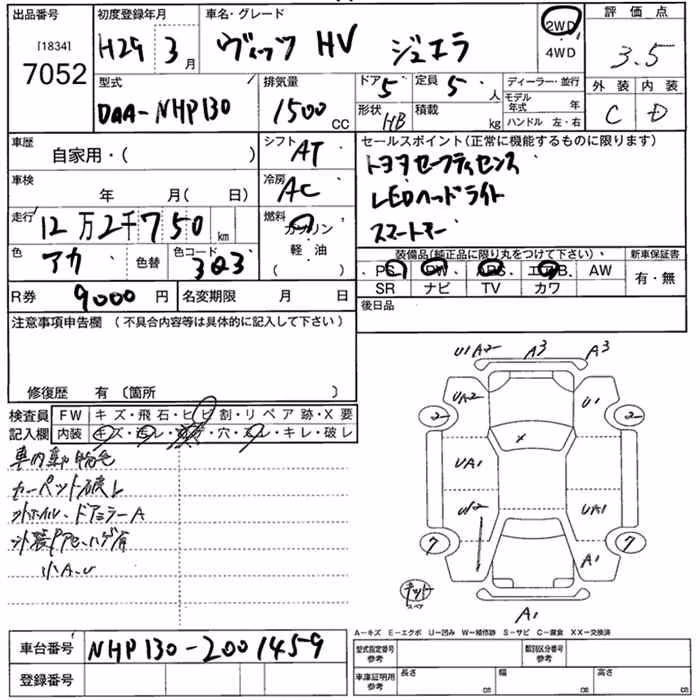 出品番号 初度登録年月 車名・グレード 2WD 評価点
[1834]
7052
H29 3月 ヴィッツ HV ジュエラ 4WD 3.5
型式 排気量 ドア 5 定員 5人 ディーラー・並行 外装 内装
モデル年式 年
DAA-NHP130 1500CC 形状 HB 積載 kg ハンドル 左・右 C D
車歴 自家用・( ) シフト AT セールスポイント(正常に機能するものに限ります)
トヨタセーフティセンス
車検 年 月( 日) 冷房 AC LEDヘッドライト
走行 12万2千750km 燃料 ガソリン スマートキー
軽・油
色 アカ 色替 色コード 3Q3 ( ) 装備品(純正品に限り丸をつけて下さい) 新車保証書
PS PW ABS エアB. AW 有・無
SR ナビ TV カワ
R券 9000円 名変期限 月 日 後日品
注意事項申告欄(不具合内容等は具体的に記入して下さい)
修復歴 有〔箇所 〕
検査員記入欄 FW キズ・飛石・ヒビ割・リペア跡・X要
内装 キズ・ヨゴレ・コゲ・穴・ズレ・キレ・破レ
車内動物毛
カーペット破レ
外ホイル、ドアミラーA
小A.U
U1A2 A3 A3
UA2 U1
2 2
X
UA1
U2 UA1
7 7
A1
スペア
A1
A-キズ E-エクボ U-凹み W-補修跡 S-サビ C-腐食 XX-交換済
車台番号 NHP130-2001459 型式指定番号 参考 類別区分番号 参考
登録番号 車庫証明用 参考 長さ cm 幅 cm 高さ cm